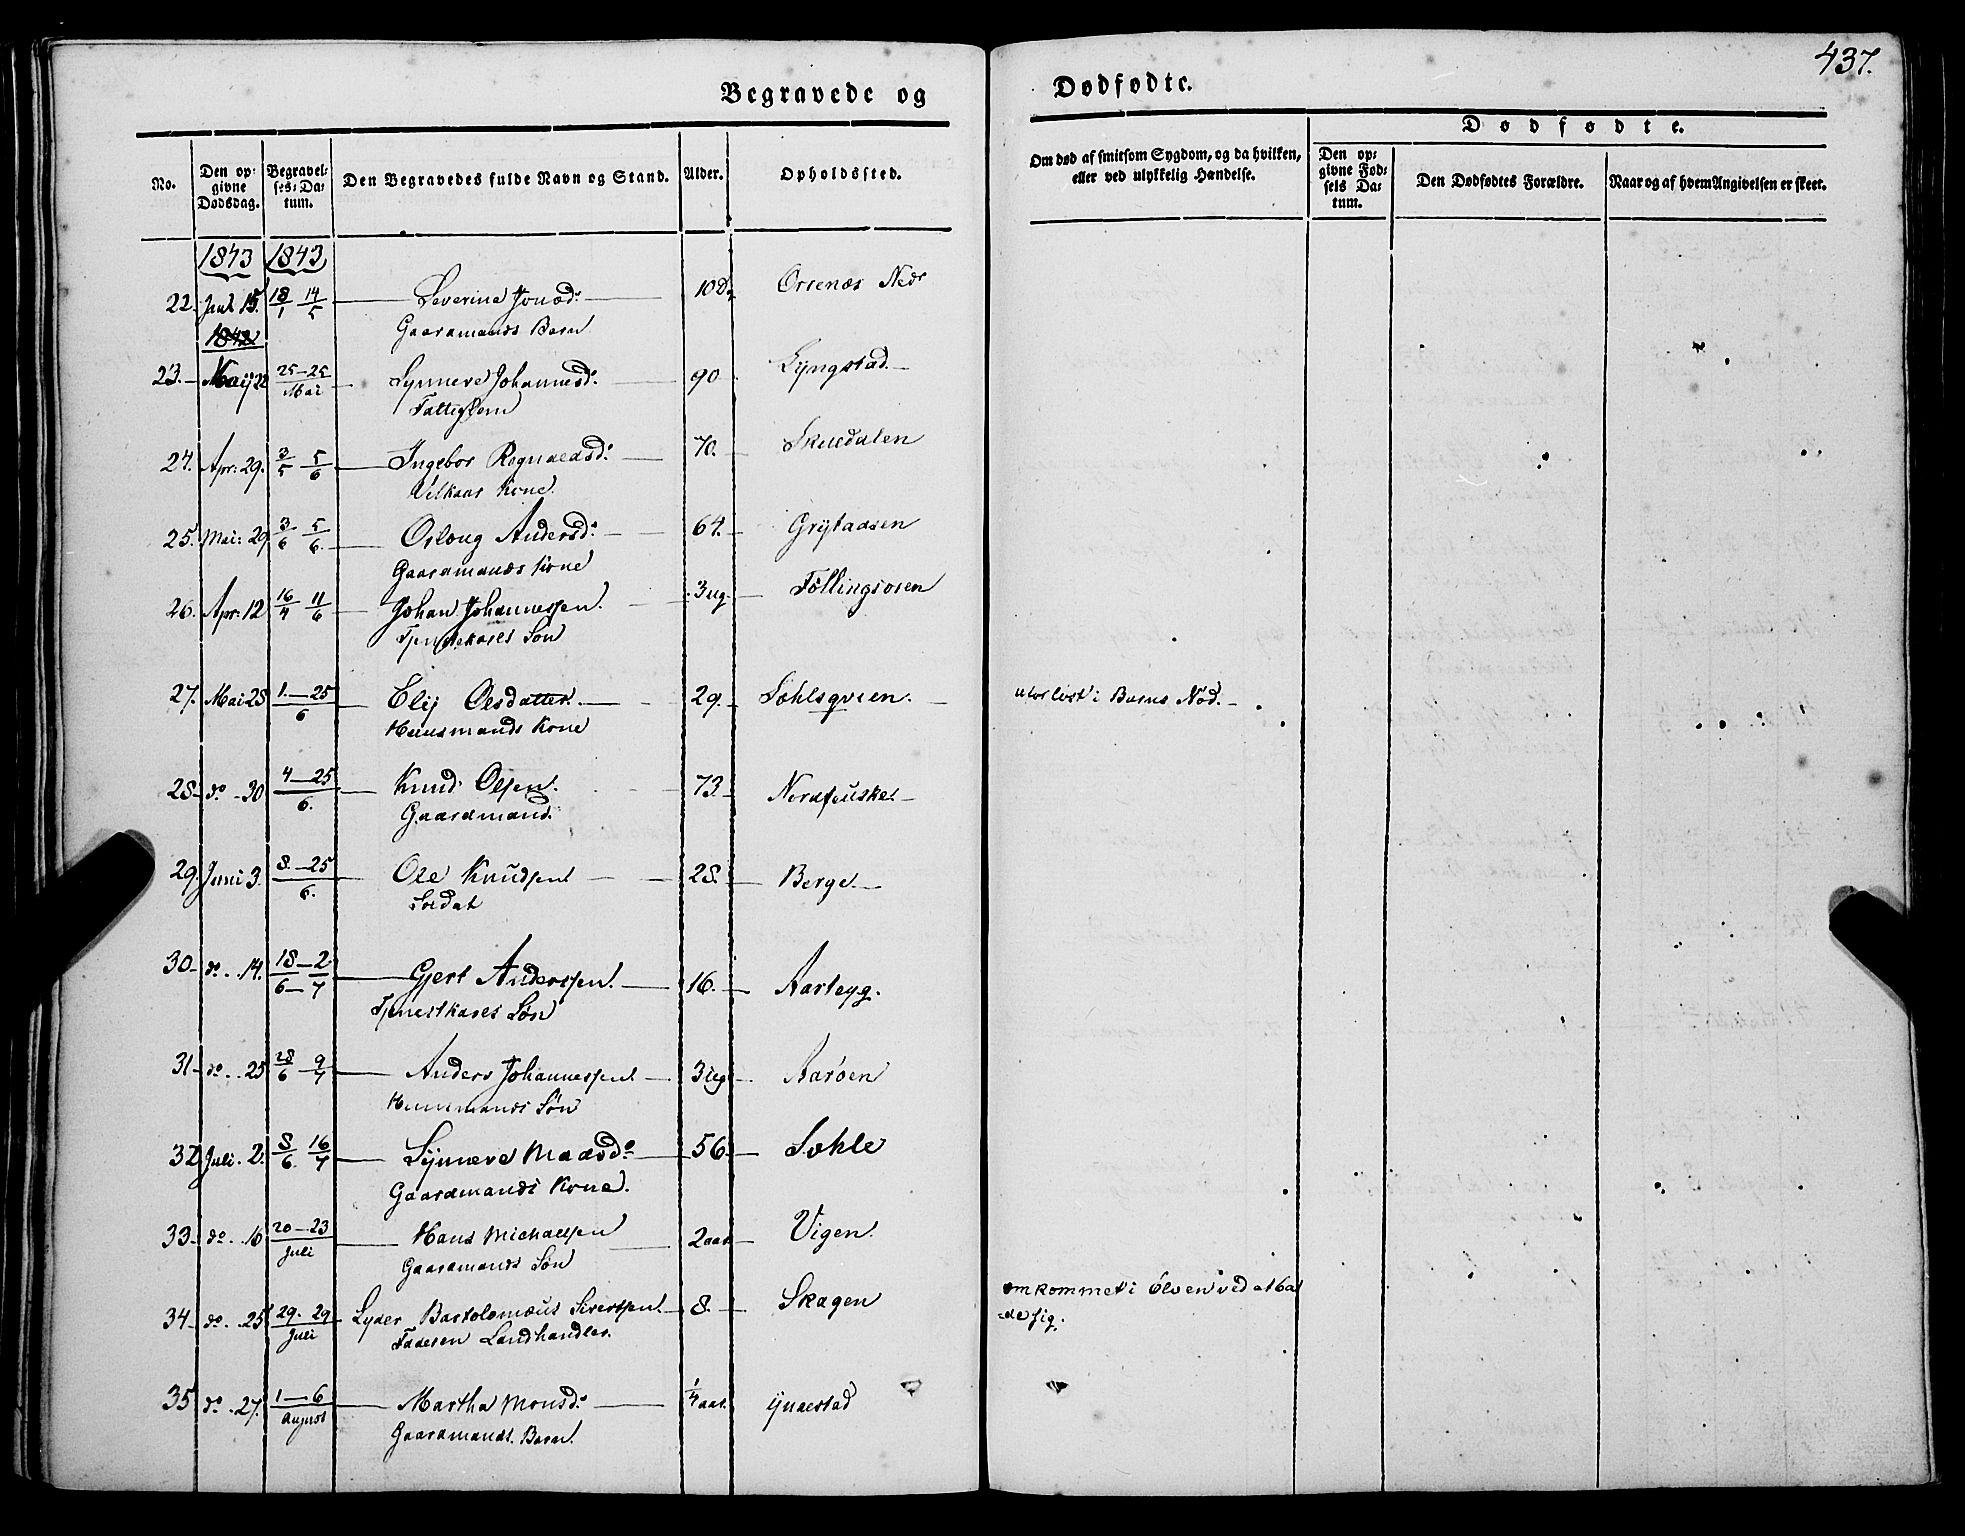 437.
Begravede og Dødfødte.
No. Den opgivne Dødsdag. Begravelses-Datum. Den Begravedes fulde Navn og Stand. Alder. Opholdssted. Om død af smitsom Sygdom, og da hvilken, eller ved ulykkelig Hændelse. Dødfødte. Den opgivne Fødsels Datum. Den Dødfødtes Forældre. Naar og af hvem Angivelsen er skeet.
1843 1843
22. 15. 18/1 14/5 Severine Jonsd: 10d. Orsenæs Nedr
Gaardmands Barn
1842
23. Maij 22 25-25 Mai Synneve Johannesd: 90 Lyngstad.
Fattiglem
24. Apr: 29. 3/5 5/6 Ingebor Rognaldsd: 70. Skuddalen
Vilkaar Kone.
25. Mai: 29 3/6 5/6. Oslaug Andersd: 64. Grytaasen
Gaardmands Kone
26. Apr: 12 16/4 11/6 Johan Johannessen. 3 ug. Föllingsosen
Tjenstekarls Søn
27. Mai 28 1.-25/6 Elij Olsdatter. 29. Sohlsqvien. uforløst i Barns Nød.
Huusmands Kone
28 do 30 4-25/6. Knud Olsen. 73. Nordfouskel
Gaardmand.
29. Juni 3. 8.-25/6. Ole Knudsen 28. Berge.
Soldat
30 do. 14. 18/6-2/7 Gjert Anderssen. 16. Aarleyg.
Tjenestkarls Søn
31 do. 25 28/6 9/7 Anders Johannessen 3 ug Aarøen
Huusmands Søn
32 Juli. 2. 8/6. 16/7 Synneve Madsd: 56. Sohle
Gaardmands Kone.
33 do. 16 20-23 Juli Hans Michaelsen 2 aar Vigen.
Gaardmands Søn
34 do. 25 29.29 Juli Lyder Bartolomæus Sivertsen 8. Skagen omkommet i Elven ved at ba
Faderen Landhandler. -de sig.
35 do. 27. 1-6 August Martha Monsd: 1/4 aar. Yndestad
Gaardmands. Barn.